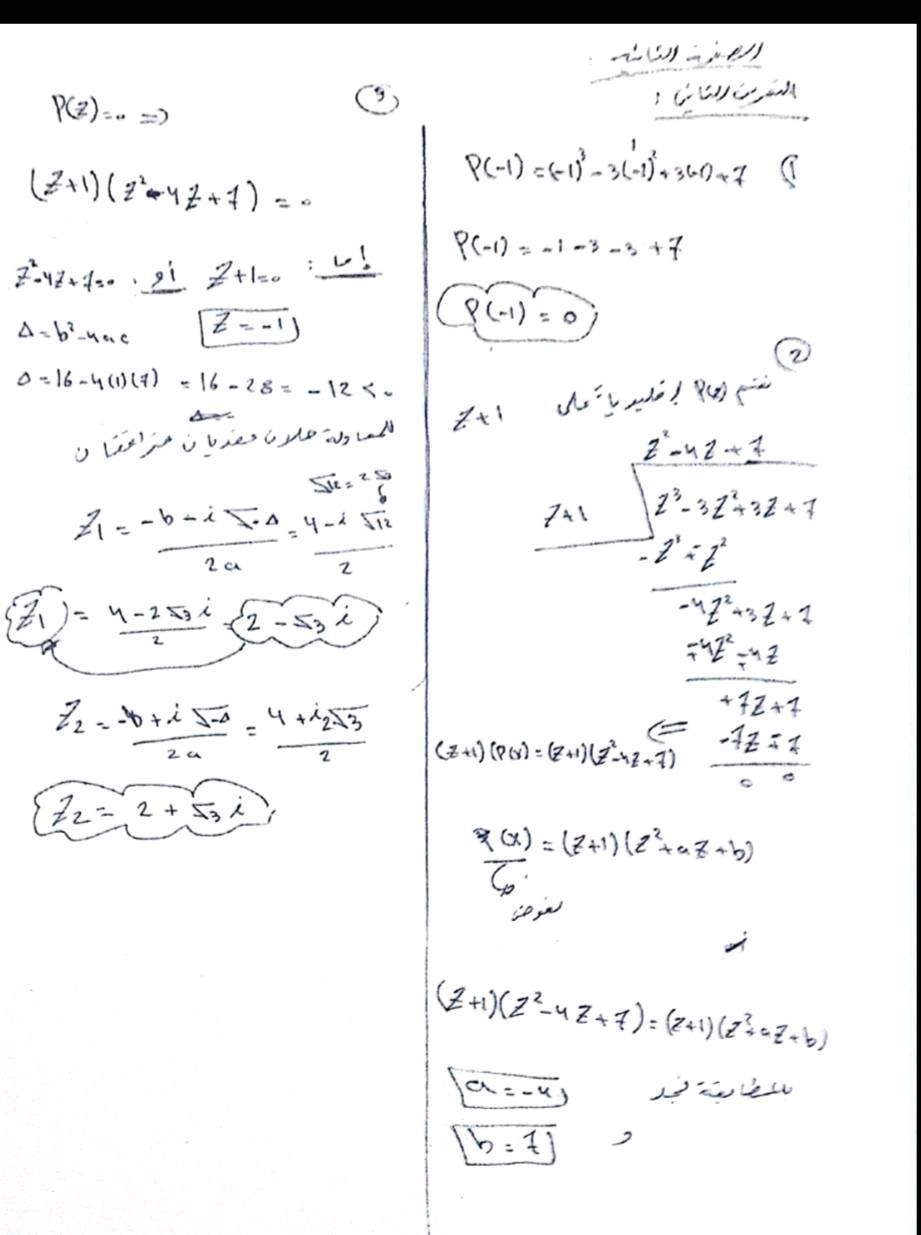 التمرين الثاني :
P(-1) = (-1)³ - 3(-1)² + 3(-1) + 7 (1
P(-1) = -1 - 3 - 3 + 7
P(-1) = 0
(2)
نقسم P(z) إقليدياً على Z+1
Z² - 4Z + 7
Z+1 Z³ - 3Z² + 3Z + 7
- Z³ ∓ Z²
-4Z² + 3Z + 7
∓4Z² ∓ 4Z
+7Z + 7
(Z+1)(P(x) = (Z+1)(Z² - 4Z + 7) ⇐ -7Z ∓ 7
0 0
P(x) = (Z+1)(Z² + aZ + b)
نعوض
(Z+1)(Z² - 4Z + 7) = (Z+1)(Z² + aZ + b)
بالمطابقة نجد a = -4
و b = 7
(3)
P(Z) = 0 ⇒
(Z+1)(Z² - 4Z + 7) = 0
إما : Z+1=0 أو Z² - 4Z + 7 = 0
Δ = b² - 4ac Z = -1
Δ = 16 - 4(1)(7) = 16 - 28 = -12 < 0
للمعادلة حلان عقديان مترافقان
√12 = 2√3
Z₁ = -b - i√-Δ / 2a = 4 - i√12 / 2
Z₁ = 4 - 2√3 i / 2 = 2 - √3 i
Z₂ = -b + i√-Δ / 2a = 4 + i2√3 / 2
Z₂ = 2 + √3 i